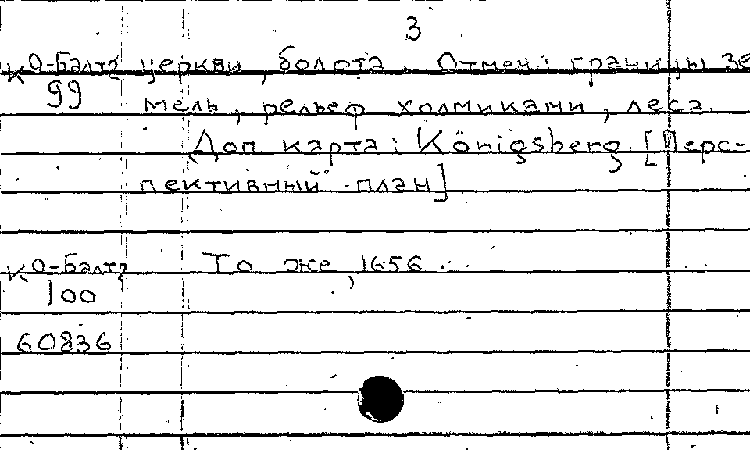 3
К О-Балт2 церкви, болота. Отмеч: границы зе
99 мель, рельеф холмиками, леса.
Доп карта: Königsberg [Перс-
пективный план]
К О-Балт2 То же, 1656.
100
60836